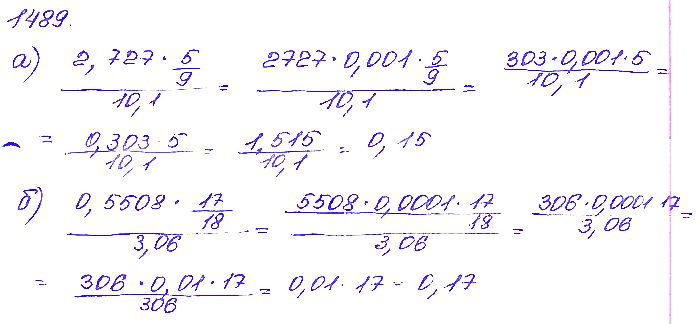 1489.
а) (2,727 · 5/9)/10,1 = (2727 · 0,001 · 5/9)/10,1 = (303 · 0,001 · 5)/10,1 =
= (0,303 · 5)/10,1 = 1,515/10,1 = 0,15
б) (0,5508 · 17/18)/3,06 = (5508 · 0,0001 · 17/18)/3,06 = (306 · 0,0001 17)/3,06 =
= (306 · 0,01 · 17)/306 = 0,01 · 17 = 0,17